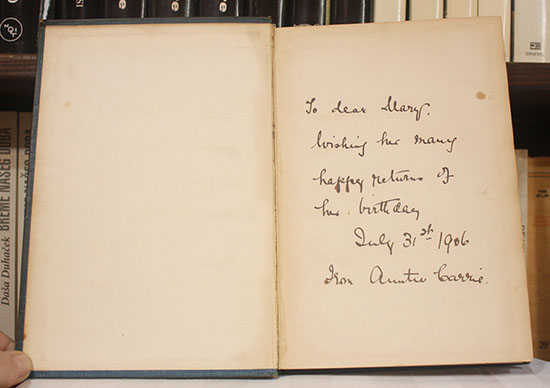 To dear Mary.
Wishing her many
happy returns of
her birthday
July 31st 1906
From Auntie Carrie.
Daša Duhaček
BREME NAŠEG DOBA